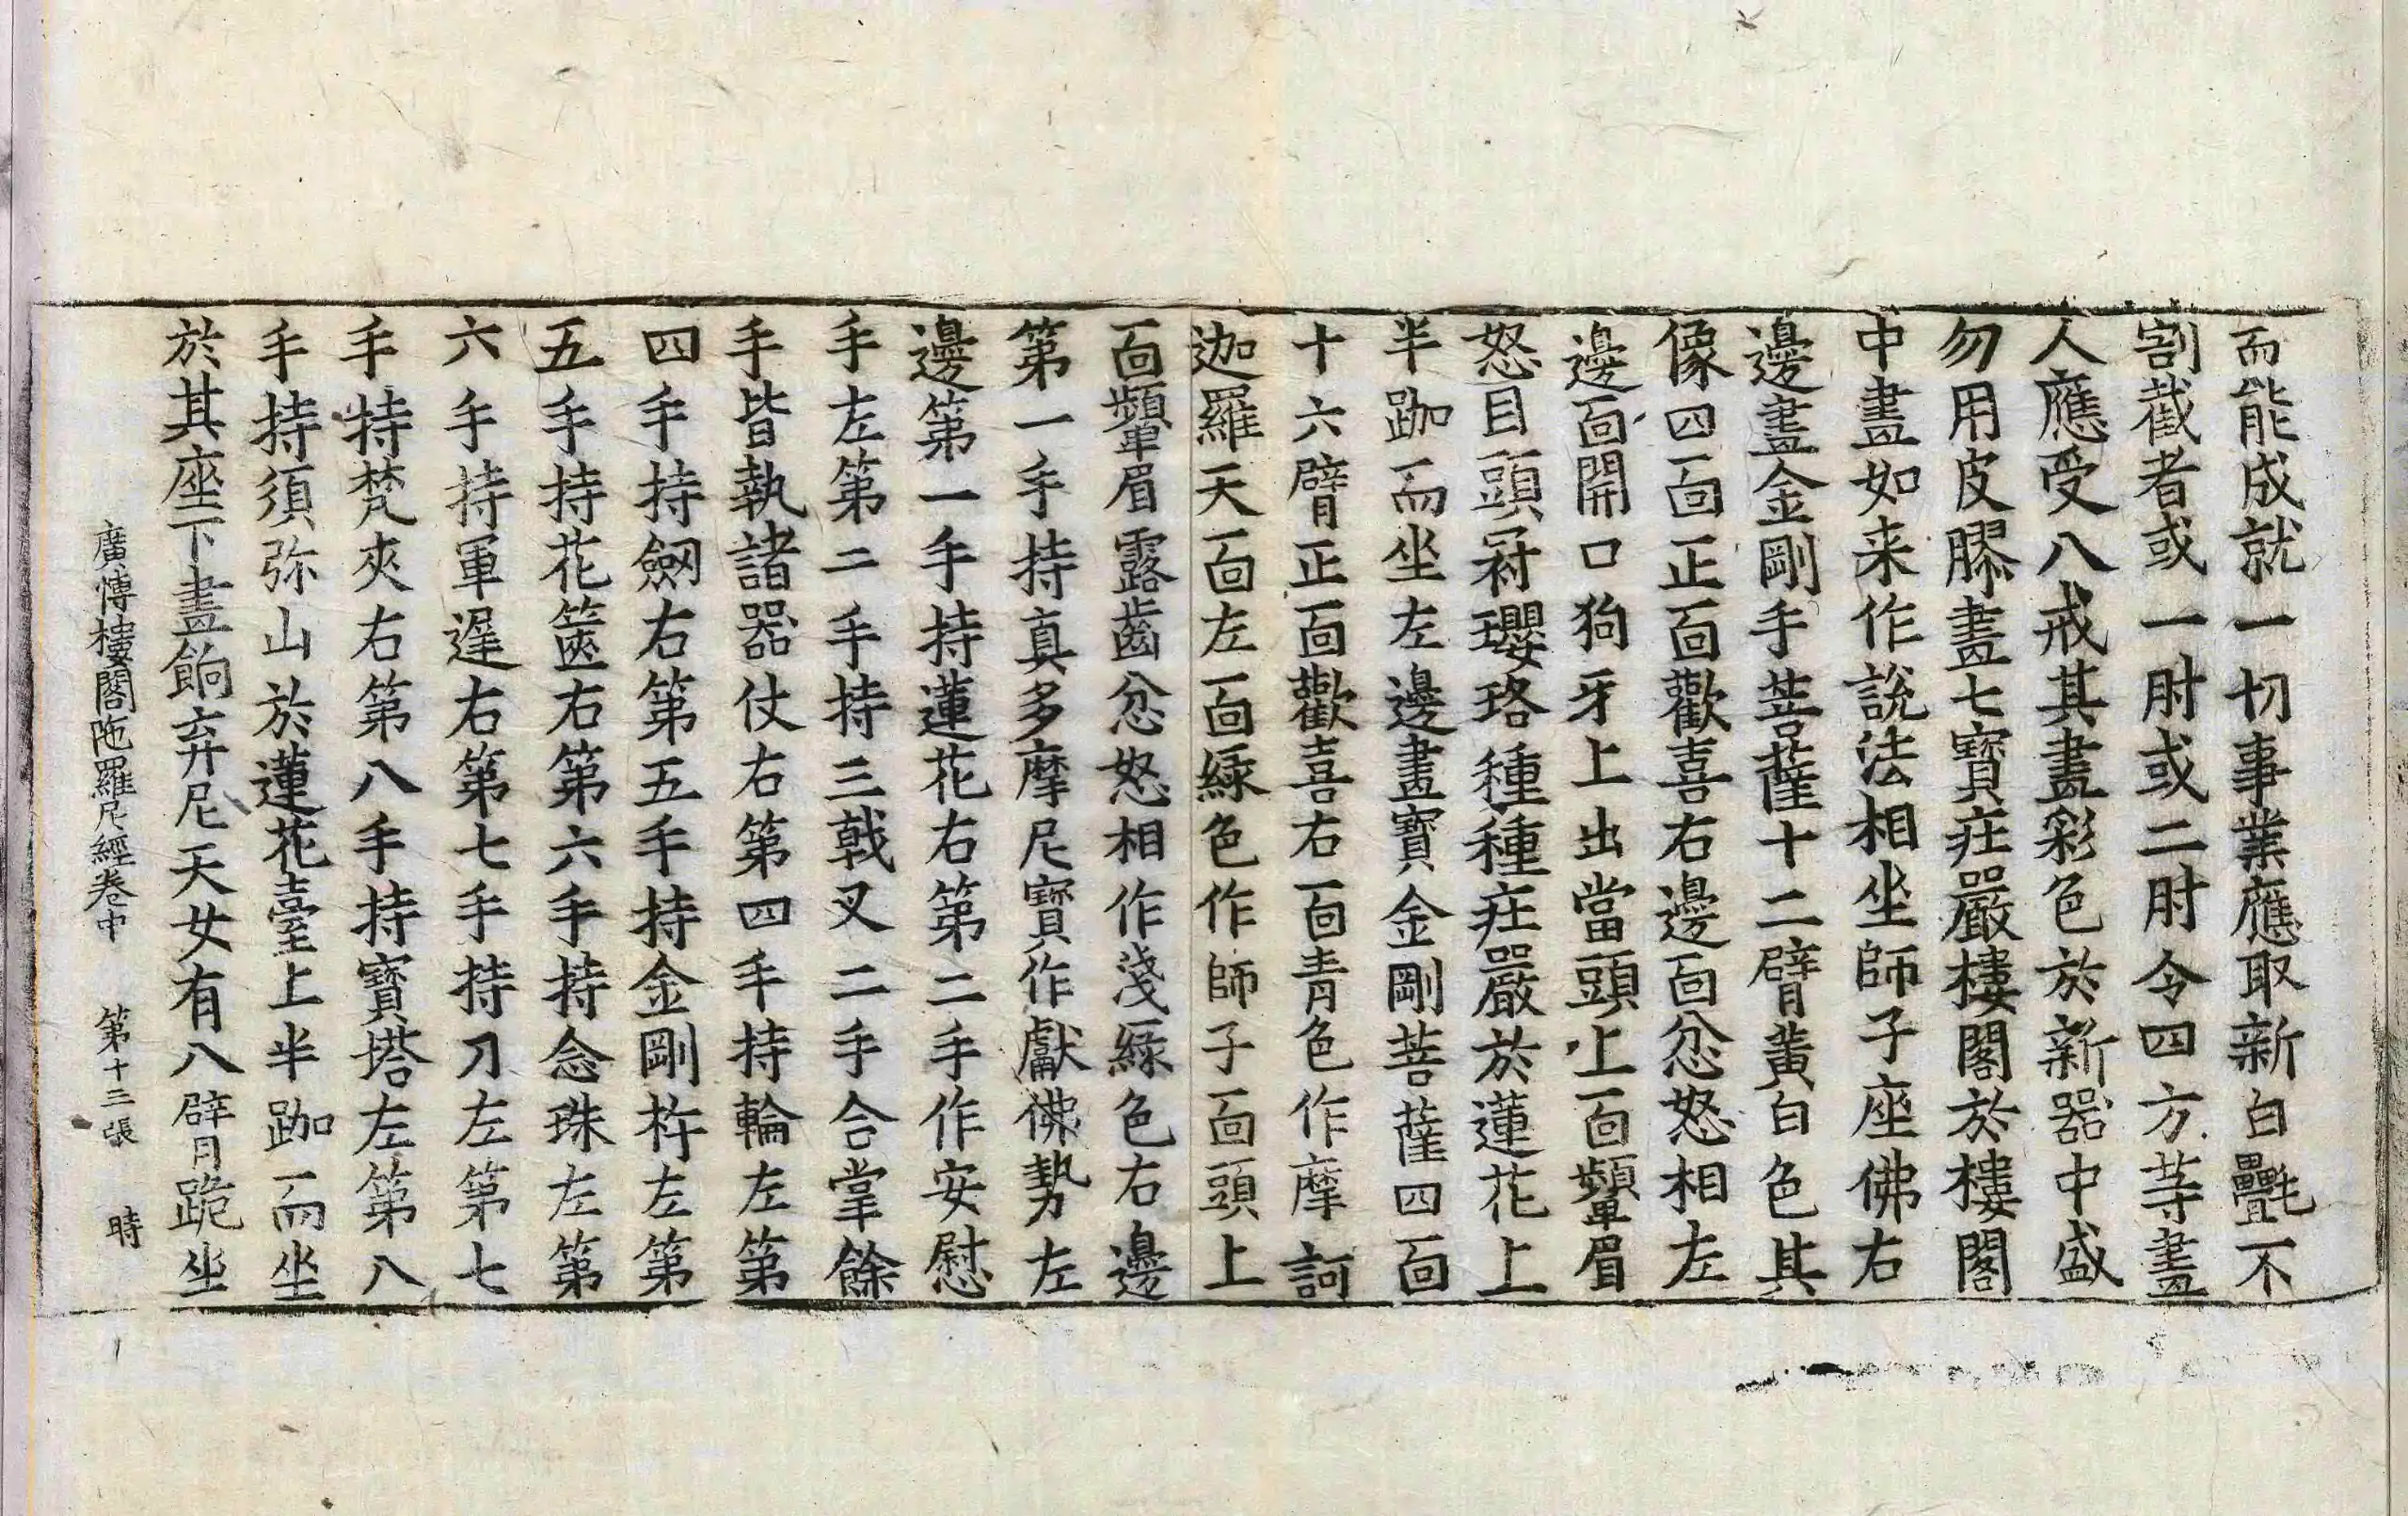 而能成就一切事業應取新白㲲不
割截者或一肘或二肘令四方等畫
人應受八戒其畫彩色於新器中盛
勿用皮膠畫七寶莊嚴樓閣於樓閣
中畫如来作說法相坐師子座佛右
邊畫金剛手菩薩十二臂黃白色其
像四面正面歡喜右邊面忿怒相左
邊面開口狗牙上出當頭上面顰眉
怒目頭冠瓔珞種種莊嚴於蓮花上
半跏而坐左邊畫寶金剛菩薩四面
十六臂正面歡喜右面青色作摩訶
迦羅天面左面綠色作師子面頭上
面顰眉露齒忿怒相作淺綠色右邊
第一手持真多摩尼寶作獻佛勢左
邊第一手持蓮花右第二手作安慰
手左第二手持三戟叉二手合掌餘
手皆執諸器仗右第四手持輪左第
四手持劒右第五手持金剛杵左第
五手持花篋右第六手持念珠左第
六手持軍遲右第七手持刀左第七
手持梵夾右第八手持寶塔左第八
手持須弥山於蓮花臺上半跏而坐
於其座下畫餉弃尼天女有八臂跪坐
廣博樓閣陁羅尼經卷中 第十三張 時